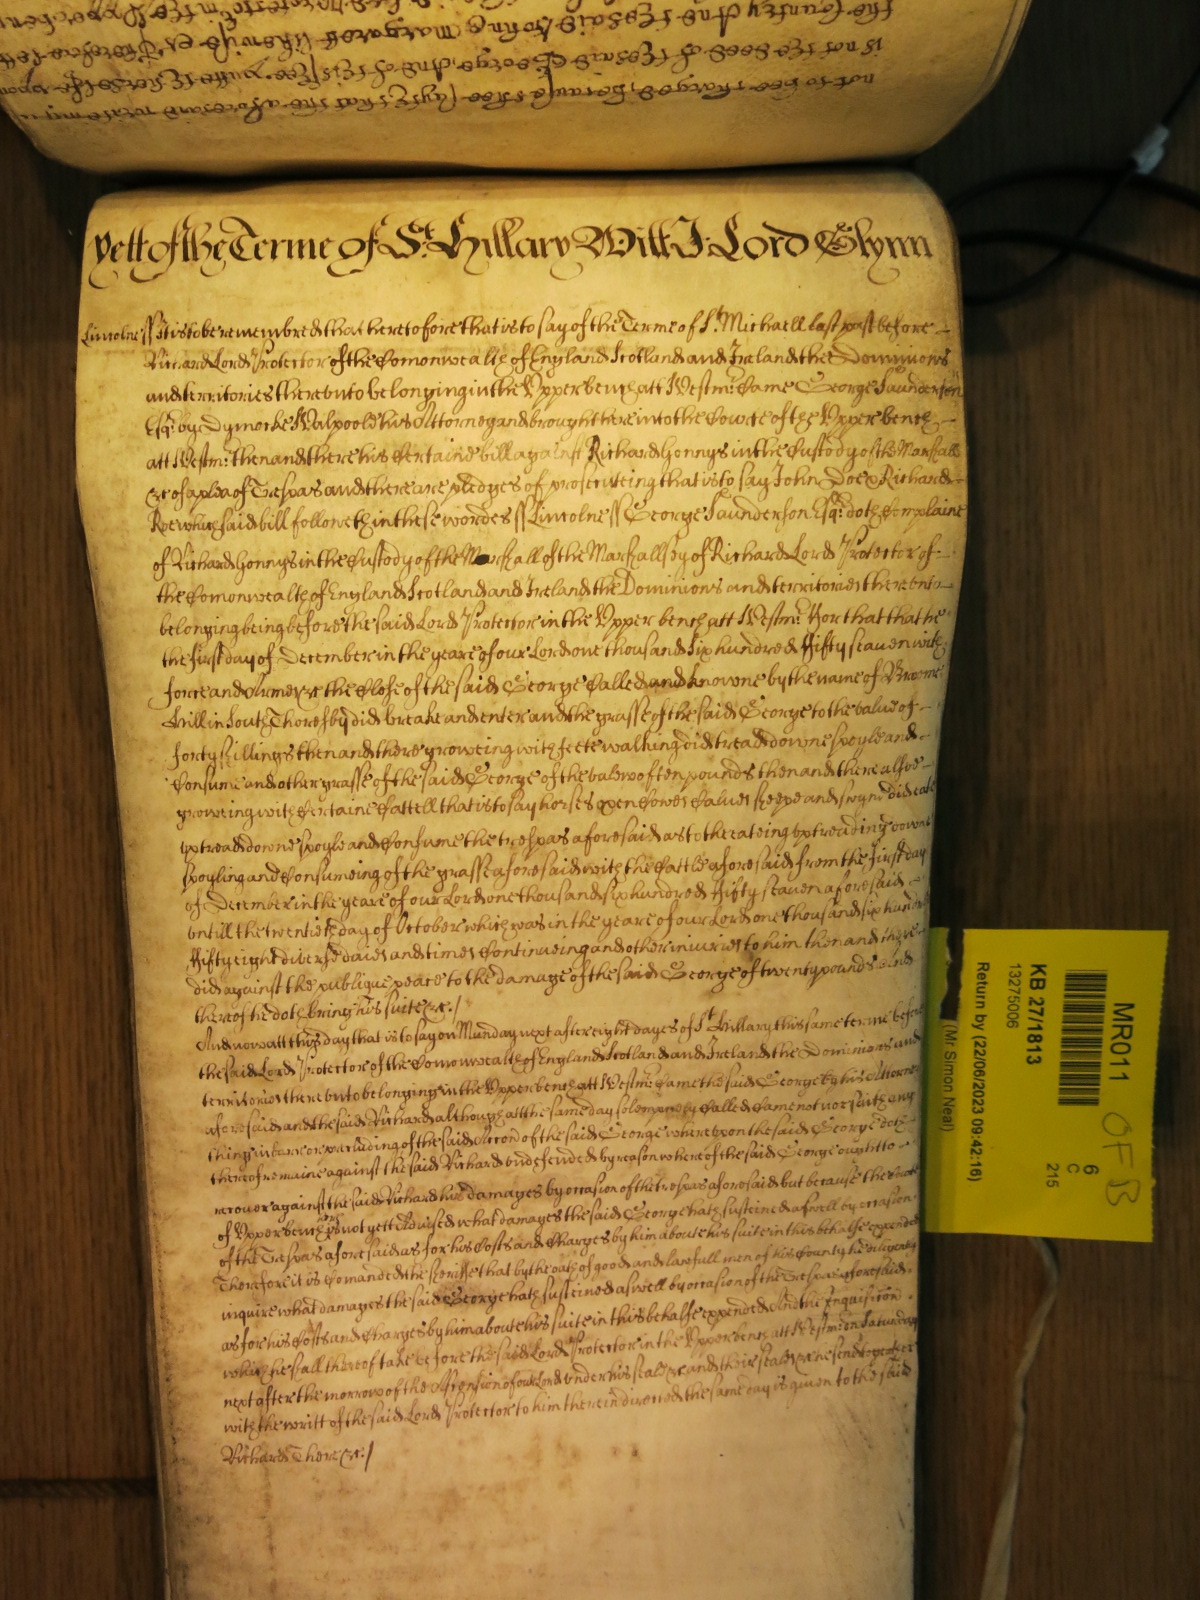 yett of the Terme of St. Hillary Will: I: Lord Glynn
Lincolne ss It is to be remembred that heretofore that is to say of the Terme of St. Michaell last past before
Richard Lord Protector of the Comonwealth of England Scotland and Ireland & the Dominions
and territories thereunto belonging in the Upper bench att Westmr. Came George Saunderson
Esqr. by Dymocke Walpoole his Attorney and brought here into the Court of the Upper bench
att Westmr. then and there his Certaine bill against Richard Honnys in the Custody of the Marshall
&c of a plea of Trespas and there are pledges of prosecuteing that is to say John Doe & Richard
Roe which said bill followeth in these wordes ss Lincolne ss George Saunderson Esqr. doth Complaine
of Richard Honnys in the Custody of the Marshall of the Marshallsey of Richard Lord Protector of
the Comonwealth of England Scotland and Ireland & the Dominions and territories thereunto
belonging being before the said Lord Protector in the Upper bench att Westmr. For that that he
the first day of December in the yeare of our Lord one thousand six hundred Fifty seaven with
force and Armes &c the Close of the said George Called and knowne by the name of Broome
Hill in South Thoresby did breake and enter and the grasse of the said George to the value of
forty shillings then and there groweing with feete walking did tread downe spoyle and
Consume and other grasse of the said George of the valew of ten pounds then and there alsoe
groweing with Certaine Cattell that is to say horses oxen Cowes Calves sheepe and swyne did eate
up tread downe spoyle and Consume the trespas aforesaid as to the eateing up treading downe
spoyling and Consumeing of the grasse aforesaid with the Cattle aforesaid from the first day
of December in the yeare of our Lord one thousand six hundred Fifty seaven aforesaid
untill the twentieth day of October which was in the yeare of our Lord one thousand six hundred
Fifty eight diverse daies and times Continueing and other injuries to him then and there
did against the publique peace to the damage of the said George of twenty pounds and
thereof he doth bring his suite &c./
And now att this day that is to say on Munday next after eight dayes of St. Hillary this same terme before
the said Lord Protector of the Comonwealth of England Scotland and Ireland & the Dominions and
territories thereunto belonging in the Upper bench att Westmr. Came the said George by his Attorney
aforesaid and the said Richard although att the same day solempnely Called Came not nor saith any
thing in barr or precluding of the said Accon of the said George whereupon the said George doth
thereof remaine against the said Richard undefended by reason whereof the said George ought to
recover against the said Richard his damages by occasion of the trespas aforesaid but because the Court
of Upper bench is not yett Advised what damages the said George hath susteined aswell by occasion
of the Trespas aforesaid as for his Costs and Charges by him about his suite in this behalfe expended
Therefore it is Comanded the sheriffe that by the oath of good and lawfull men of his County he diligently
inquire what damages the said George hath susteined aswell by occasion of the Trespas aforesaid
as for his Costs and Charges by him about his suite in this behalfe expended And the Inquisicon
which he shall thereof take before the said Lord Protector in the Upper bench att Westmr. on Saturday
next after the morrow of the Assension of our Lord under his seale &c and their seales &c he send together
with the writt of the said Lord Protector to him therein directed the same day is given to the said
Richard There &c./
MR011
OF B
6
C
215
KB 27/1813
13275006
Return by (22/06/2023 09:42:16)
(Mr Simon Neal)